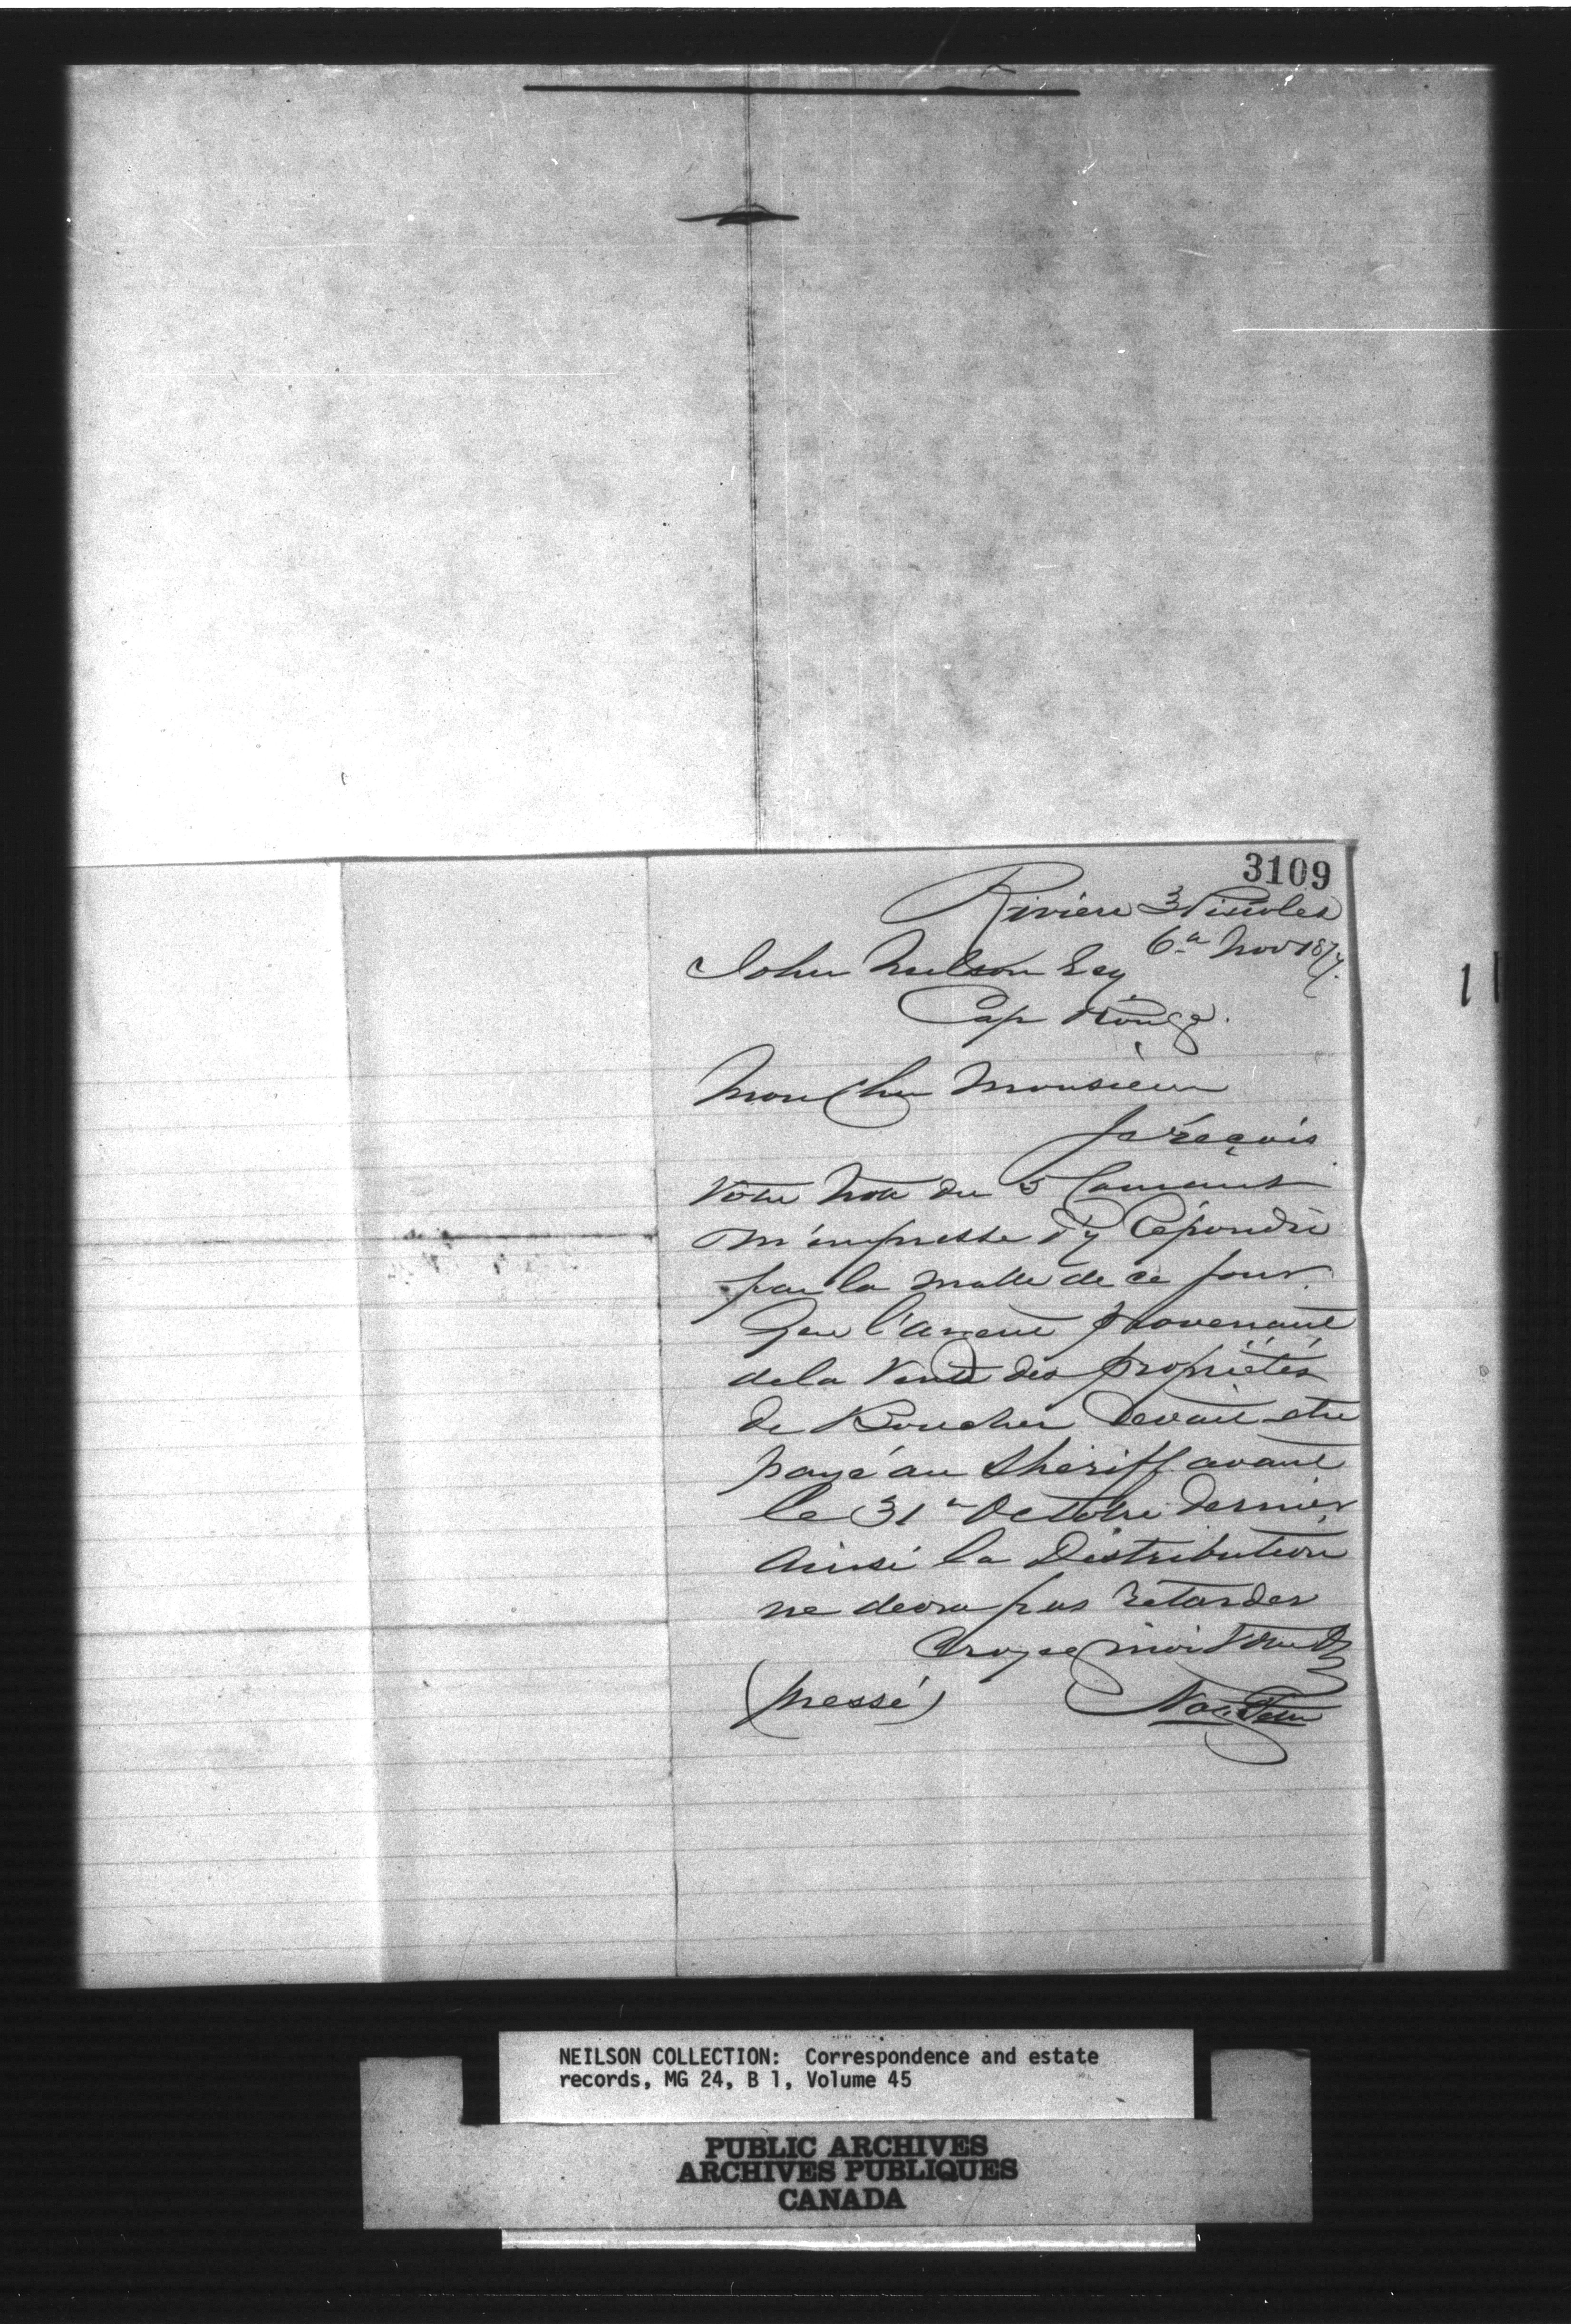 3109
Rivière 3 Pistoles
6 Nov 187
John Neilson Esq
Cap Rouge.
Mon Cher Monsieur
Je reçois
Votre Note du 5 Courant
M'empresse d'y Répondre
par la malle de ce jour.
Que l'argent provenant
de la Vente des propriétés
de Boucher devait etre
payé au Sheriff avant
le 31 Octobre dernier
Ainsi la Distribution
ne devra pas retarder
Croyez moi Votre
(pressé)
NEILSON COLLECTION: Correspondence and estate
records, MG 24, B 1, Volume 45
PUBLIC ARCHIVES
ARCHIVES PUBLIQUES
CANADA